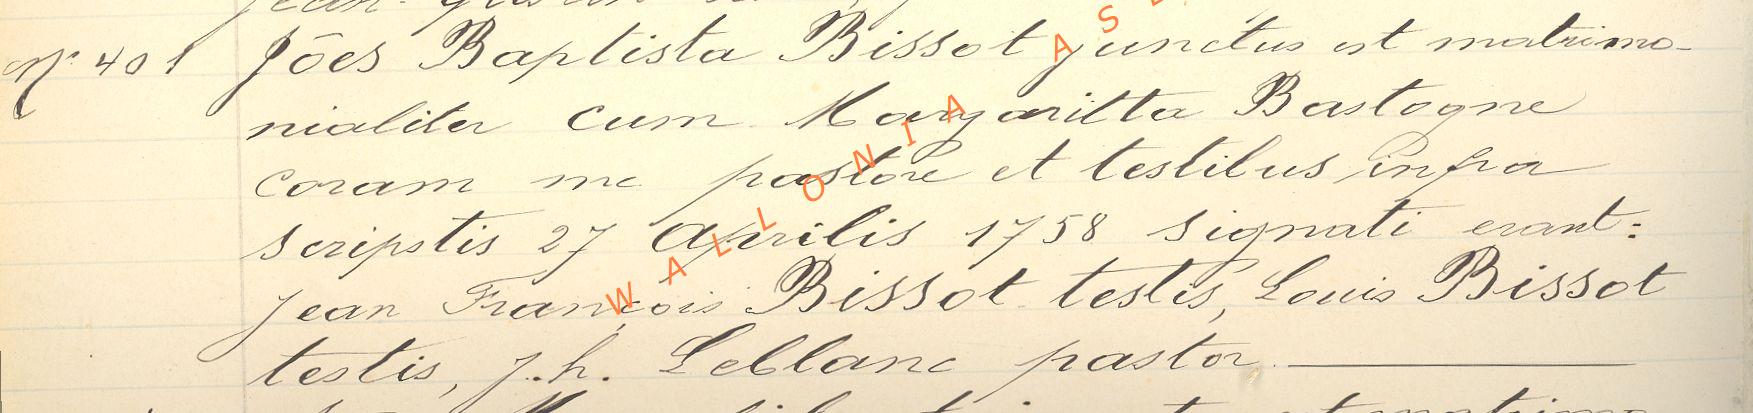 Nº 401 Jões Baptista Bissot junctus est matrimo-
nialiter cum Margaritta Bastogne
coram me pastore et testibus infra
scripstis 27 aprilis 1758 signati erant:
jean François Bissot testis, Louis Bissot
testis, j.h. Leblanc pastor
WALLONIA